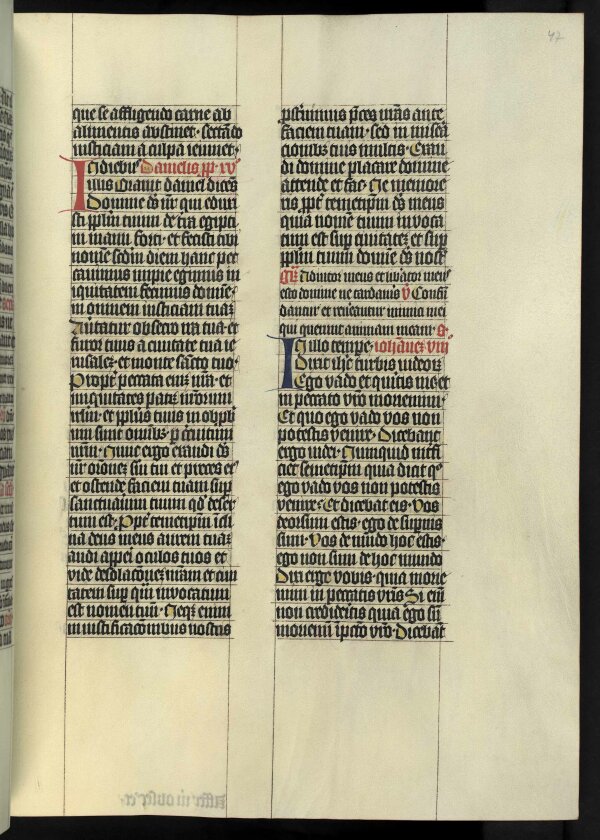 que se affligendo carne ab
alimentis abstinet · sectando
iusticiam a culpa ieiunet ·
In diebus Danielis pph xv
illis Orauit daniel dicens
Domine ds nr qui eduxi
sti pplm tuum de tra egipti
in manu forti · et fecisti tibi
nomen scdm diem hanc pec
cauimus impie egimus in
iquitatem fecimus domine ·
in omnem iusticiam tuam
Auertatur obsecro ira tua et
furor tuus a ciuitate tua ie
rusalem · et monte sancto tuo ·
Propter peccata enim nra · et
iniquitates patrum nrorum
irlm · et pplus tuus in obpro
um sunt omibus per circuitum
nrm · Nunc ergo exaudi ds
nr orones serui tui et preces eius
et ostende faciem tuam sup
sanctuarium tuum qd deser
tum est · Propter temetipm incli
na deus meus aurem tuam
audi aperi oculos tuos et
vide desolacones nram et ciui
tatem sup qua inuocatum
est nomen tuu · Neqz enim
in iustificaconibus nostris
psternimus preces nras ante
faciem tuam · sed in misera
cionibus tuis multis · Exau
di domine placare domine
attende et fac · Ne moreris
ppter temetipm ds meus
quia nomen tuum inuoca
tum est sup ciuitatem et sup
pplm tuum domine ds noster
Gr Adiutor meus et liberator meus
esto domine ne tardaueris V Confun
dantur et reuereantur inimici mei
qui querunt animam meam · S ·
In illo tempe · iohannes viii
Dixit ihc turbis iudeorum
Ego vado et queritis me et
in peccato vro moriemini ·
Et quo ego vado vos non
potestis venire · Dicebant
ergo iudei · Numquid interfi
ciet semetipm quia dicit quo
ego vado vos non potestis
venire · Et dicebat eis · Vos
deorsum estis · ego de supnis
sum · Vos de mundo hoc estis ·
ego non sum de hoc mundo
Dixi ergo vobis · quia morie
mini in peccatis vris Si enim
non credideritis quia ego sum
moriemini in pcto vro · Dicebant